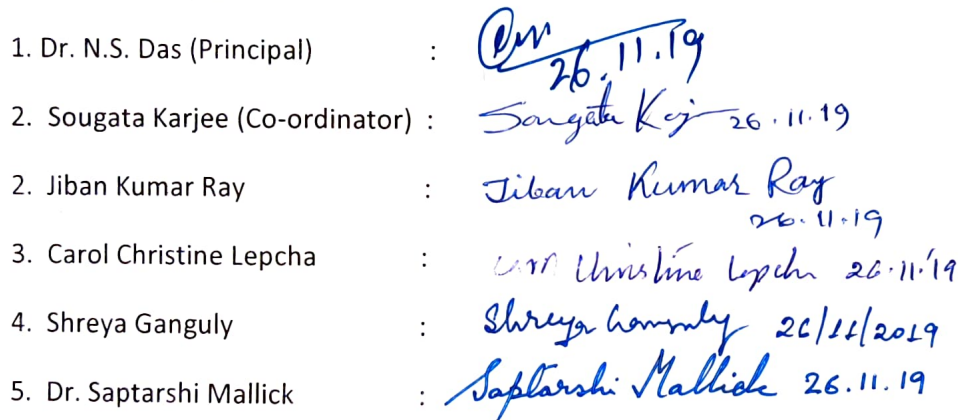 1. Dr. N.S. Das (Principal) : 26.11.19
2. Sougata Karjee (Co-ordinator) : Sougata Kaj 26.11.19
2. Jiban Kumar Ray : Jiban Kumar Ray
26.11.19
3. Carol Christine Lepcha : Christine Lepcha 26.11.'19
4. Shreya Ganguly : Shreya Ganguly 26/11/2019
5. Dr. Saptarshi Mallick : Saptarshi Mallick 26.11.19